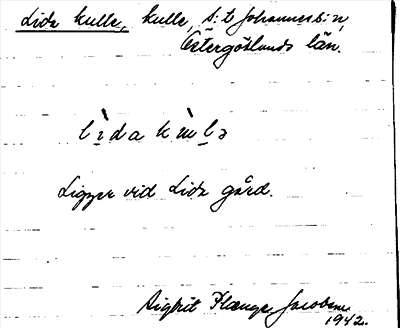 Lida kulle, kulle, S:t Johannes b:n,
Östergötlands län.
lìda kɯ̀lə
Ligger vid Lida gård.
Sigbrit Plænge Jacobson
1942.